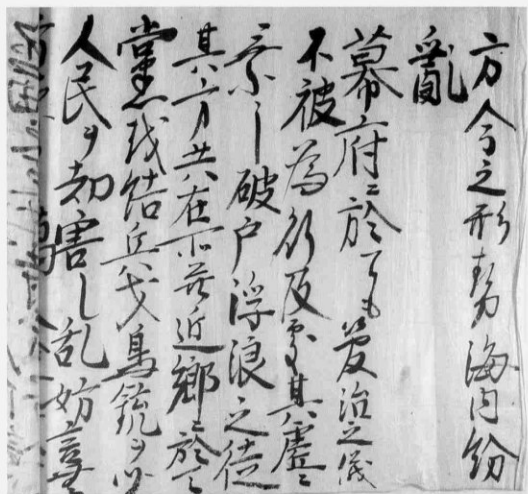 方今之形勢海内紛
亂
幕府ニ於ても萬治之儀
不被為行及其虚ニ
乗し破戸浮浪之徒
其方共在所并近郷ニ於て
黨ヲ結兵戈鳥銃ヲ以
人民ヲ却害し乱妨